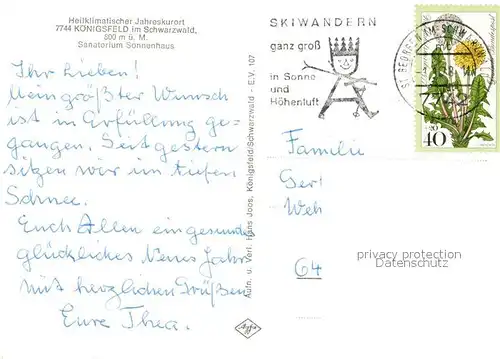 Heilklimatischer Jahreskurort
7744 KÖNIGSFELD im Schwarzwald,
800 m ü. M.
Sanatorium Sonnenhaus
Ihr Lieben!
Mein größter Wunsch
ist in Erfüllung ge-
gangen. Seit gestern
sitzen wir im tiefen
Schnee.
Euch Allen ein gesundes
glückliches Neues Jahr
mit herzlichen Grüßen
Eure Thea.
Aufn. u. Verl. Hans Joos, Königsfeld/Schwarzwald - E.V. 107
Agfa
SKIWANDERN
ganz groß
in Sonne
und
Höhenluft
ST. GEORGEN IM SCHWARZWALD
+20
40
Familie
Ger
Weh
64
privacy protection
Datenschutz